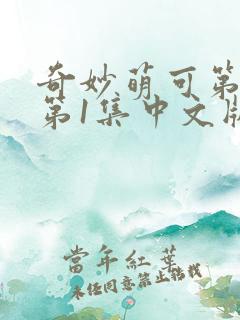 奇妙萌可第
第1集中文版
當年紅葉
未经同意禁止转载